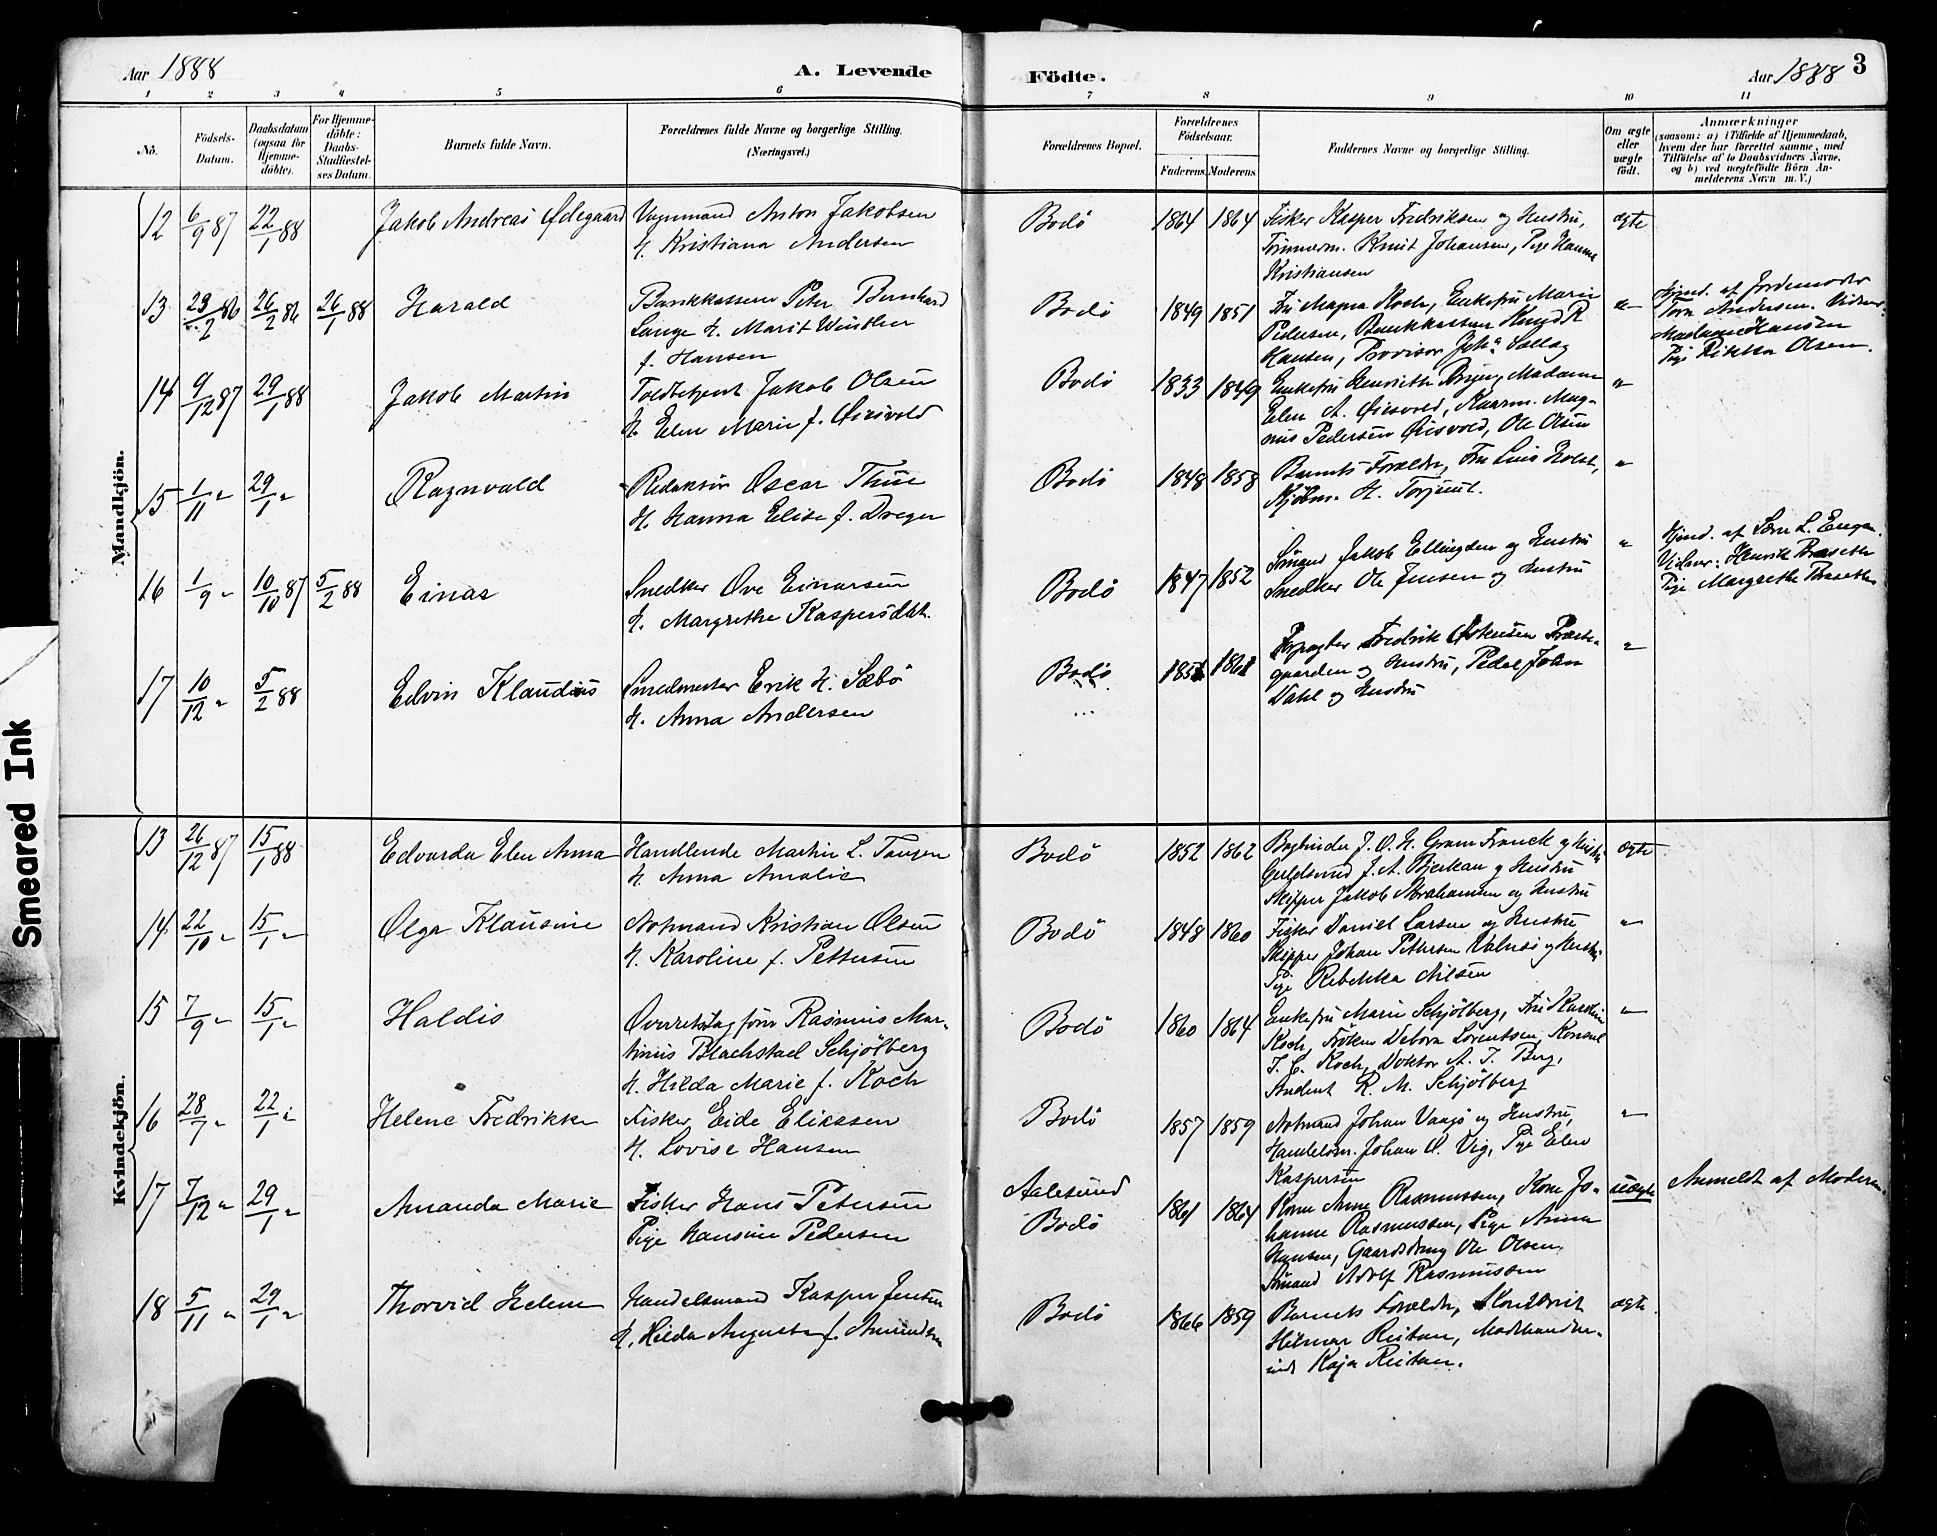 Aar 1888
A. Levende
Födte.
Aar 1888
3
1 2 3 4 5 6 7 8 9 10 11
Nô.
Födsels-
Datum.
Daabsdatum
(ogsaa for
Hjemme-
döbte).
For Hjemme-
döbte:
Daabs-
Stadfæstel-
ses Datum.
Barnets fulde Navn.
Forældrenes fulde Navne og borgerlige Stilling.
(Næringsvei.)
Forældrenes Bopæl.
Forældrenes
Födselsaar.
Faderens. Moderens.
Faddernes Navne og borgerlige Stilling.
Om ægte
eller
uægte
födt.
Anmærkninger
(saasom: a) i Tilfælde af Hjemmedaab,
hvem der har forrettet samme, med
Tilföielse af to Daabsvidners Navne,
og b) ved uægtefödte Börn An-
melderens Navn m. V.)
Mandkjön.
12 6/9 87 22/1 88 Jakob Andreas Ødegaard Vognmand Anton Jakobsen
H. Kristiana Andersen
Bodö 1864 1864 Fisker Kasper Fredriksen og Hustru,
Tømmerm. Knut Johansen, Pige Hanna
Kristiansen
ægte
13 23/2 86 26/2 86 26/1 88 Harald Bankkasserer Peter Bernhard
Lange H. Marit Winther
f. Hansen
Bodö 1849 1851 Fru Magna Koch, Enkefru Marie
Pedersen, Bankkasserer Knud R
Hansen, Provisor
Hjmd. af Jordemoder
Tora Andersen. Vidner:
Madame Hansen
Pige Rikka Olsen.
14 9/12 87 29/1 88 Jakob Martin Toldbetjent Jakob Olsen
H. Elen Marie f. Øiesvold
Bodö 1833 1849 Enkefru Henriette Madame
Elen A. Øiesvold, Kaarm. Mag-
nus Pedersen Øiesvold, Ole Olsen
"
15 1/11 " 29/1 " Ragnvald Redaktör Oscar Thue
H. Hanna Elise f. Dreyer
Bodö 1848 1858 Barnets Forældre, Fru Holst,
Kjöbm. H.
"
16 1/9 " 10/10 87 5/2 88 Einar Snedker Ove Einarsen
H. Margrethe Kaspersdatt.
Bodö 1847 1852 Sömand Jakob Ellingsen og Hustru
Snedker Ole Jensen og Hustru
"
Hjmd. af L.
Vidner: Henrik
Pige Margrethe
17 10/12 " 5/2 88 Edvin Klaudius Smedmester Erik H. Sæbö
H. Anna Andersen
Bodö 1861 Forpagter Fredrik Præste-
gaarden og Hustru, Peder John
Dahl og Hustru
"
Kvindekjön.
13 26/12 87 15/1 88 Edvarda Elen Anna Handlende Martin L. Tangen
H. Anna Amalie
Bodö 1852 1862 Bogbinder J. O. H. Gram Franck og Hustru
Guldsmed J. A. Bjerkan og Hustru
Skipper Jakob Abrahamsen og Hustru
ægte
14 22/10 " 15/1 " Olga Klausine Notmand Kristian Olsen
H. Karoline f. Pettersen
Bodö 1848 1860 Fisker Daniel Larsen og Hustru
Skipper Johan Pettersen og Hustru
Pige Rebekka Nilsen
"
15 7/9 " 15/1 " Haldis Overretssagförer Rasmus Mar-
tinus Blachstad Schjölberg
H. Hilda Marie f. Koch
Bodö 1860 1864 Enkefru Marie Schjölberg, Fru
Koch, Fröken Debora Lorentsen, Konsul
J. C. Koch, Doktor A. T. Berg,
Student R. M. Schjölberg
"
16 28/7 " 22/1 " Helene Fredrikke Fisker Eide Eliassen
H. Lovise Hansen
Bodö 1857 1859 Notmand Johan Vaagö og Hustru,
Handelsm. Johan O. Vig, Pige Elen
Kaspersen
"
17 7/12 " 29/1 " Amanda Marie Fisker Hans Petersen
Pige Hansine Pedersen
Aalesund
Bodö
1861 1864 Kone Anne Rasmussen, Kone Jo-
hanne Rasmussen, Pige Anna
Hansen, Gaardsdreng Ole Olsen,
Sömand Adolf Rasmussen
uægte
Anmeldt af Moderen.
18 5/11 " 29/1 " Thorvid Helene Handelsmand Kasper Jensen
H. Hilda Augusta f. Amundsen
Bodö 1866 1859 Barnets Forældre,
Hilmar Reitan, Modehandler-
inde Kaja Reitan.
ægte.
Smeared Ink